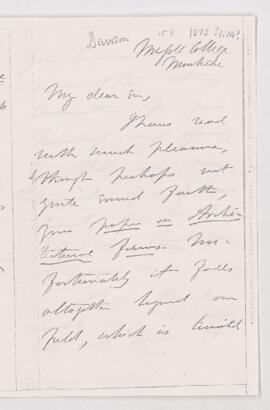 Dawson 158 1873?/1874?
McGill College
Montreal
My dear Sir,
I have read
with much pleasure,
though perhaps not
quite sound faith,
your paper on Archi-
tectural forms. Un-
fortunately it falls
altogether beyond our
field, which is limited